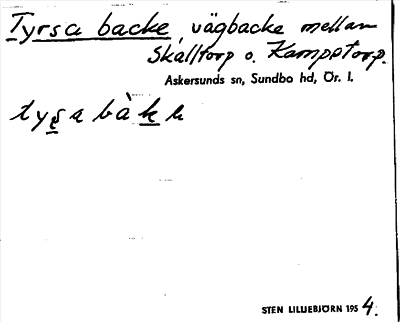 Tyrsa backe, vägbacke mellan
Skalltorp o. Kampetorp.
Askersunds sn, Sundbo hd, Ör. l.
tysa bàkα
STEN LILLIEBJÖRN 1954.